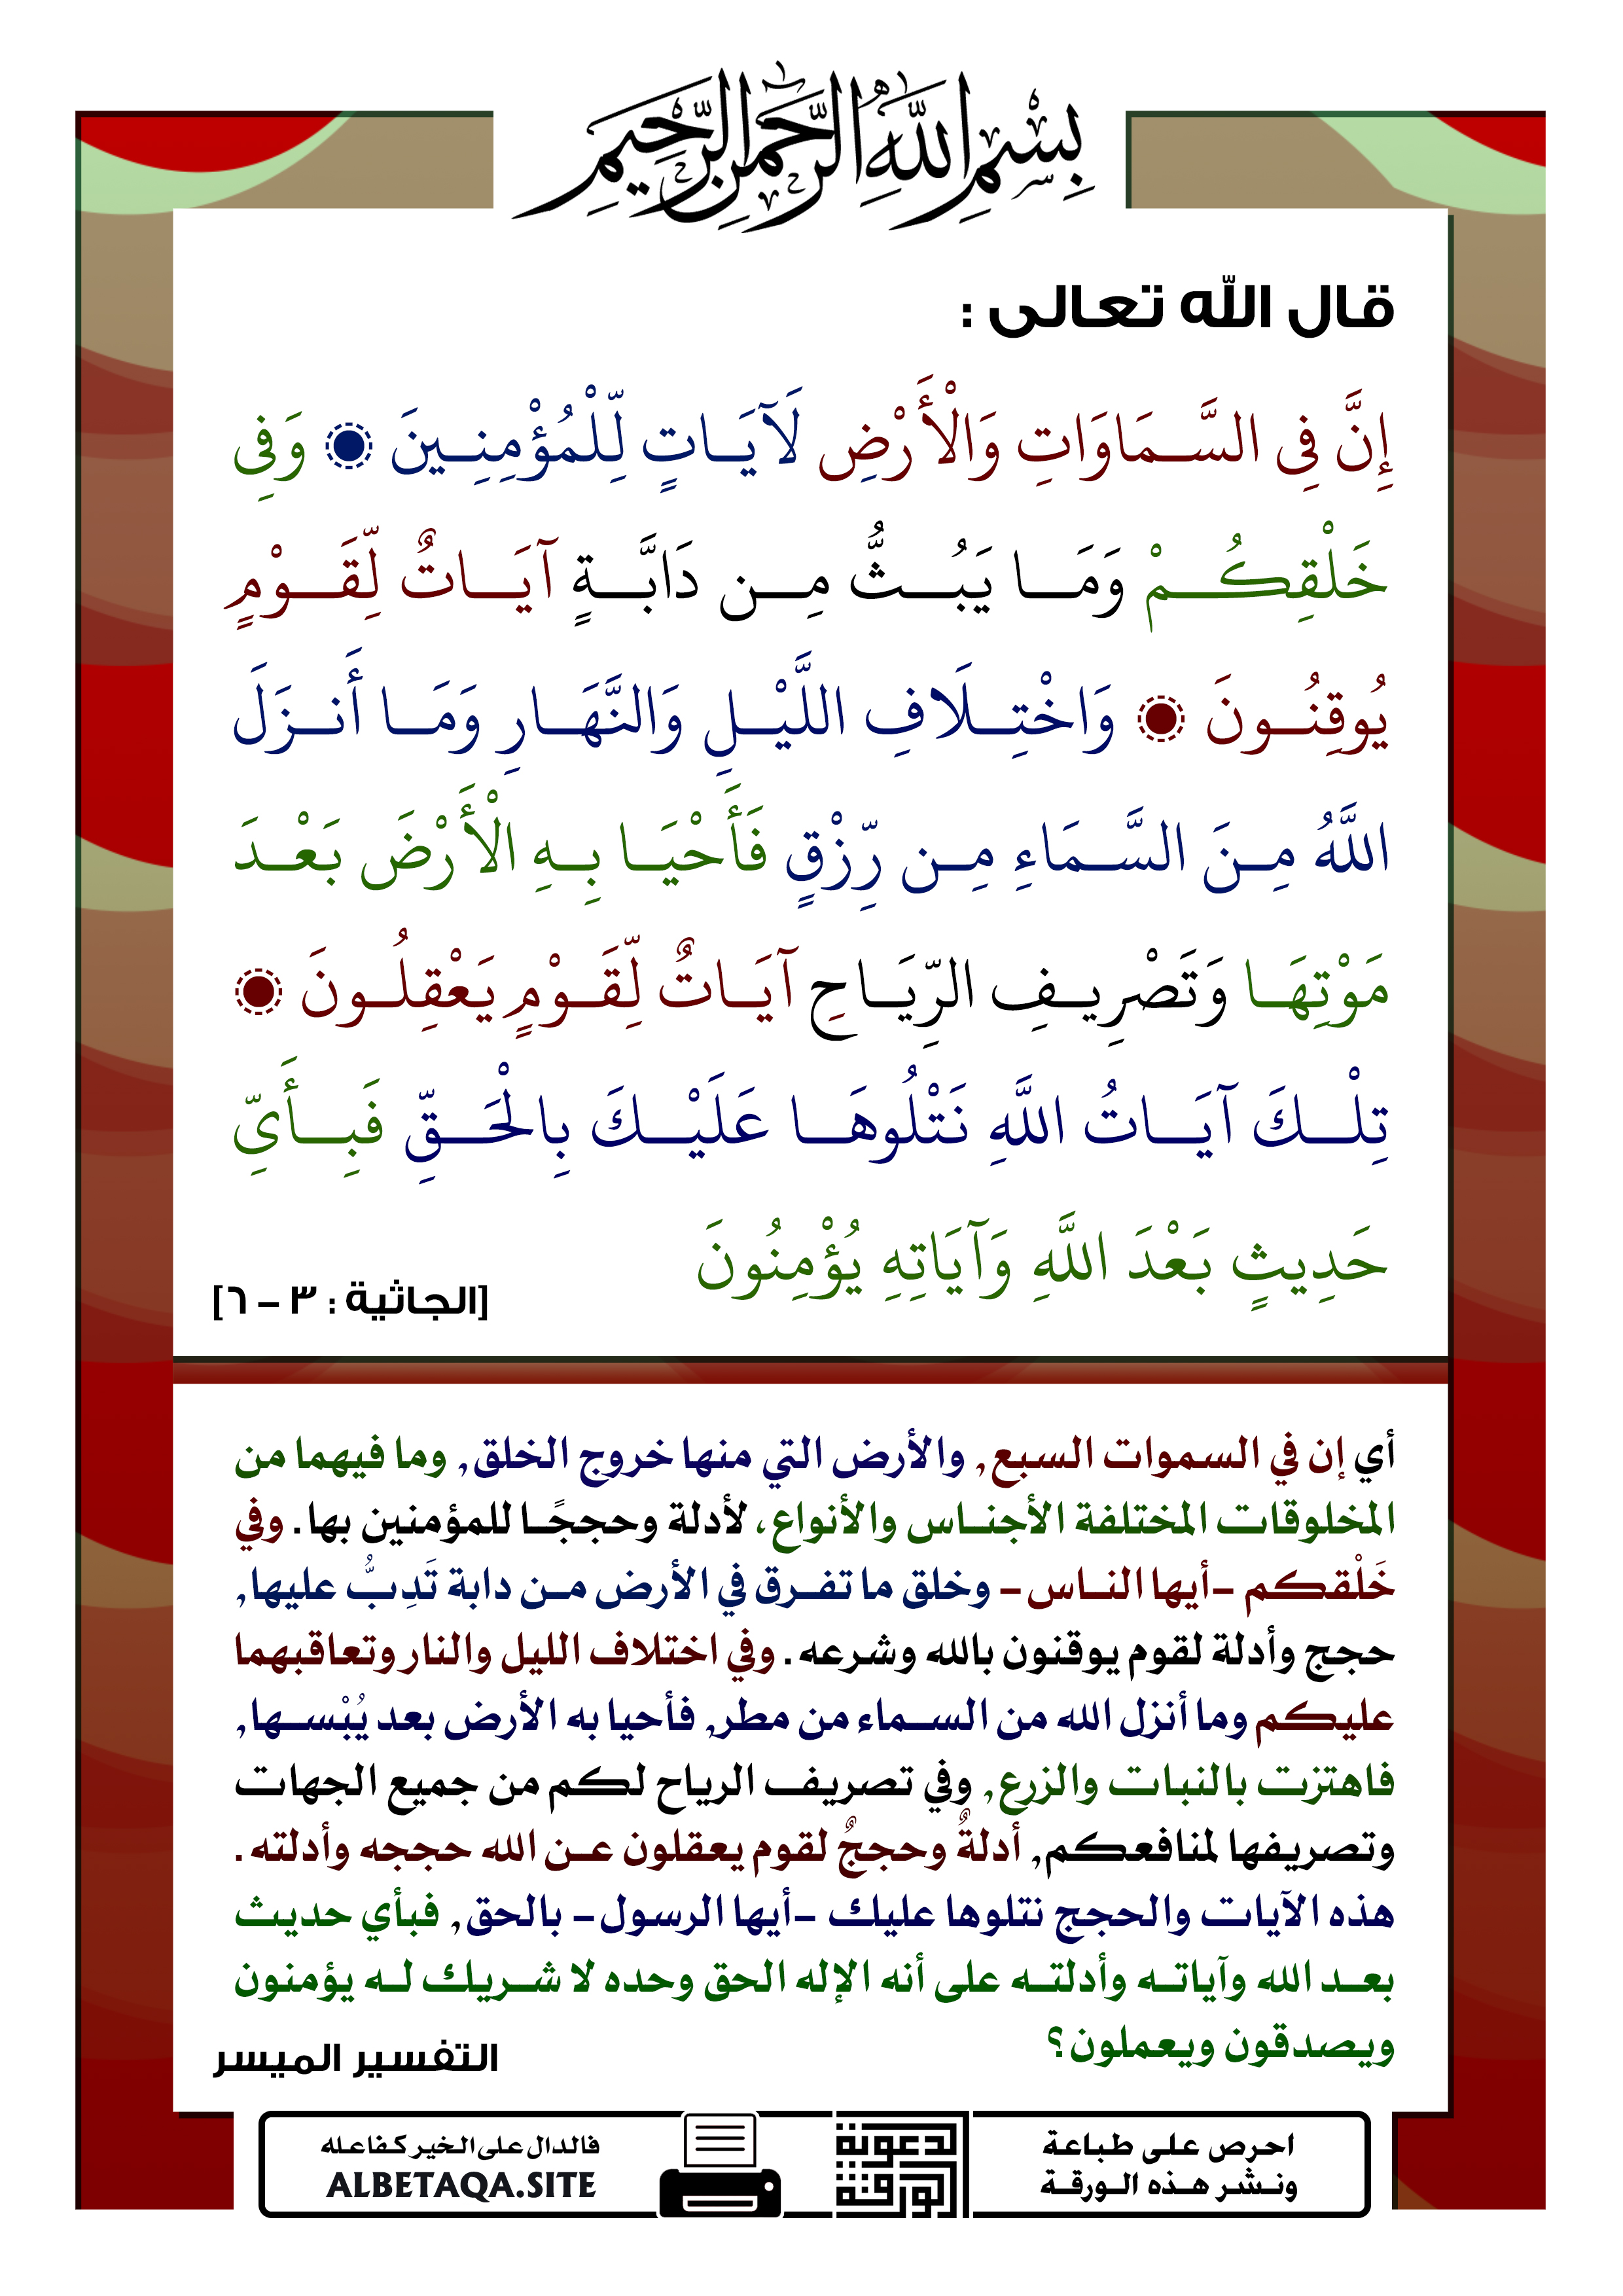 بِسْمِ اللَّهِ الرَّحْمَٰنِ الرَّحِيمِ
قال الله تعالى :
إِنَّ فِي السَّمَاوَاتِ وَالْأَرْضِ لَآيَاتٍ لِّلْمُؤْمِنِينَ ۝ وَفِي
خَلْقِكُمْ وَمَا يَبُثُّ مِن دَابَّةٍ آيَاتٌ لِّقَوْمٍ
يُوقِنُونَ ۝ وَاخْتِلَافِ اللَّيْلِ وَالنَّهَارِ وَمَا أَنزَلَ
اللَّهُ مِنَ السَّمَاءِ مِن رِّزْقٍ فَأَحْيَا بِهِ الْأَرْضَ بَعْدَ
مَوْتِهَا وَتَصْرِيفِ الرِّيَاحِ آيَاتٌ لِّقَوْمٍ يَعْقِلُونَ ۝
تِلْكَ آيَاتُ اللَّهِ نَتْلُوهَا عَلَيْكَ بِالْحَقِّ فَبِأَيِّ
حَدِيثٍ بَعْدَ اللَّهِ وَآيَاتِهِ يُؤْمِنُونَ
[الجاثية : ٣ – ٦]
أي إن في السموات السبع, والأرض التي منها خروج الخلق, وما فيهما من
المخلوقات المختلفة الأجناس والأنواع، لأدلة وحججًا للمؤمنين بها. وفي
خَلْقكم –أيها الناس– وخلق ما تفرق في الأرض من دابة تَدِبُّ عليها,
حجج وأدلة لقوم يوقنون بالله وشرعه. وفي اختلاف الليل والنار وتعاقبهما
عليكم وما أنزل الله من السماء من مطر, فأحيا به الأرض بعد يُبْسها,
فاهتزت بالنبات والزرع, وفي تصريف الرياح لكم من جميع الجهات
وتصريفها لمنافعكم, أدلةٌ وحججٌ لقوم يعقلون عن الله حججه وأدلته.
هذه الآيات والحجج نتلوها عليك –أيها الرسول– بالحق, فبأي حديث
بعد الله وآياته وأدلته على أنه الإله الحق وحده لا شريك له يؤمنون
ويصدقون ويعملون؟
التفسير الميسر
احرص على طباعة
ونشر هذه الورقة
الورقة
الدعوية
فالدال على الخير كفاعله
ALBETAQA.SITE